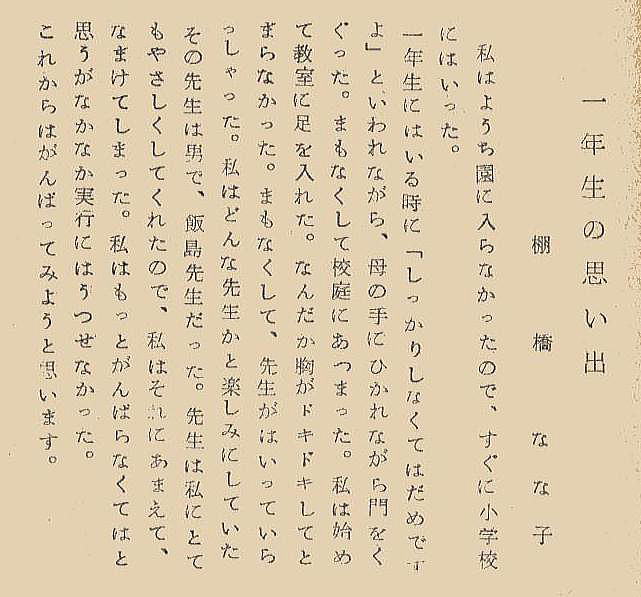 一年生の思い出
棚橋なな子
私はようち園に入らなかったので、すぐに小学校
にはいった。
一年生にはいる時に「しっかりしなくてはだめです
よ」といわれながら、母の手にひかれながら門をく
ぐった。まもなくして校庭にあつまった。私は始め
て教室に足を入れた。なんだか胸がドキドキしてと
まらなかった。まもなくして、先生がはいっていら
っしゃった。私はどんな先生かと楽しみにしていた
その先生は男で、飯島先生だった。先生は私にとて
もやさしくしてくれたので、私はそれにあまえて、
なまけてしまった。私はもっとがんばらなくてはと
思うがなかなか実行にはうつせなかった。
これからはがんばってみようと思います。